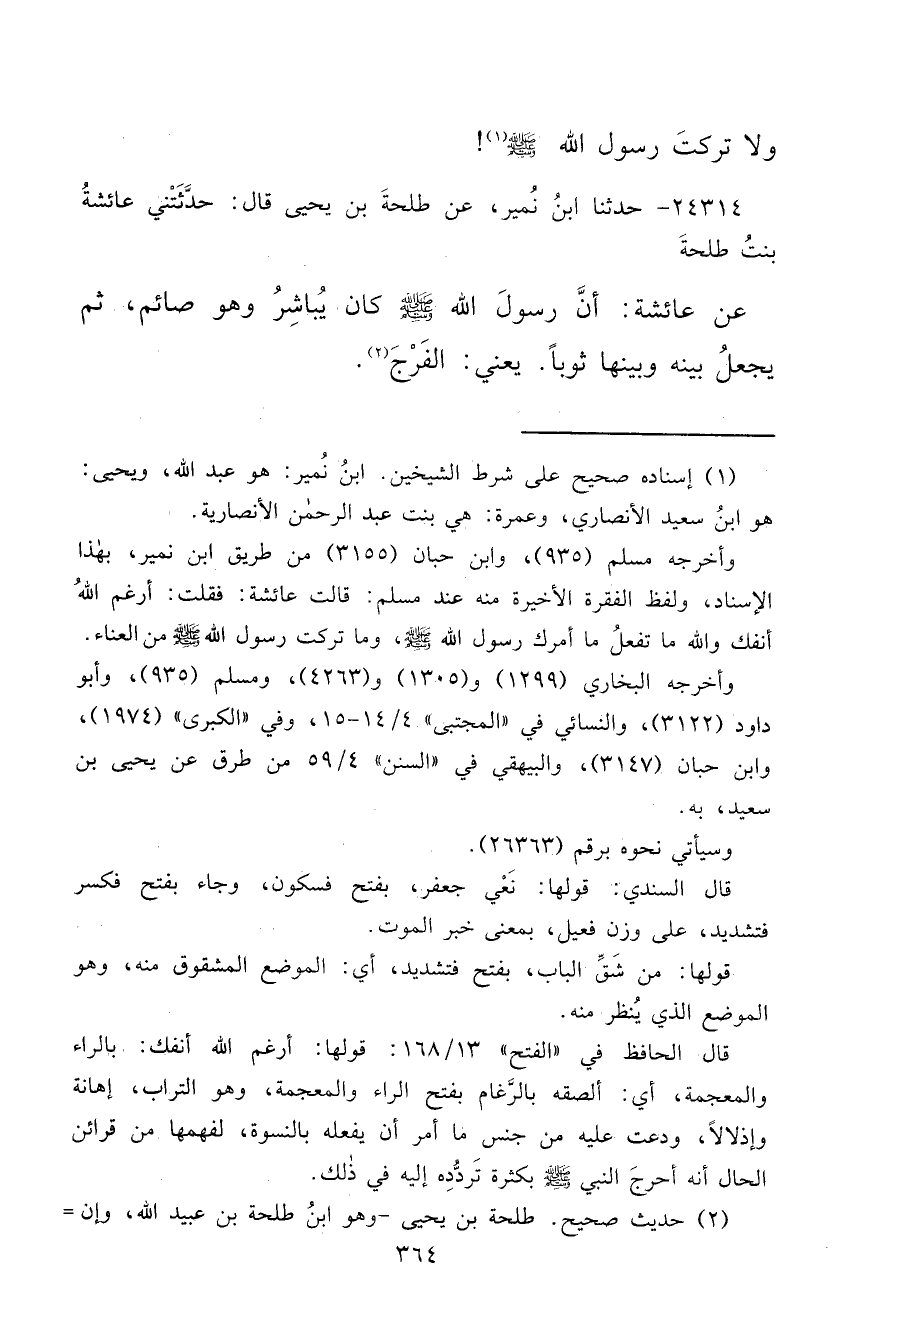 ولا تركتَ رسول الله ﷺ(١)!
٢٤٣١٤- حدثنا ابنُ نُمير، عن طلحةَ بن يحيى قال: حدَّثَتْني عائشةُ
بنتُ طلحةَ
عن عائشة: أنَّ رسولَ الله ﷺ كان يُباشِرُ وهو صائم، ثم
يجعلُ بينه وبينها ثوباً. يعني: الفَرْجَ(٢).
(١) إسناده صحيح على شرط الشيخين. ابنُ نُمير: هو عبد الله، ويحيى:
هو ابنُ سعيد الأنصاري، وعمرة: هي بنت عبد الرحمٰن الأنصارية.
وأخرجه مسلم (٩٣٥)، وابن حبان (٣١٥٥) من طريق ابن نمير، بهٰذا
الإسناد، ولفظ الفقرة الأخيرة منه عند مسلم: قالت عائشة: فقلت: أرغم اللهُ
أنفك والله ما تفعلُ ما أمرك رسول الله ﷺ، وما تركت رسول الله ﷺ من العناء.
وأخرجه البخاري (١٢٩٩) و(١٣٠٥) و(٤٢٦٣)، ومسلم (٩٣٥)، وأبو
داود (٣١٢٢)، والنسائي في «المجتبى» ١٤/٤-١٥، وفي «الكبرى» (١٩٧٤)،
وابن حبان (٣١٤٧)، والبيهقي في «السنن» ٥٩/٤ من طرق عن يحيى بن
سعيد، به.
وسيأتي نحوه برقم (٢٦٣٦٣).
قال السندي: قولها: نَعْي جعفر، بفتح فسكون، وجاء بفتح فكسر
فتشديد، على وزن فعيل، بمعنى خبر الموت.
قولها: من شَقِّ الباب، بفتح فتشديد، أي: الموضع المشقوق منه، وهو
الموضع الذي يُنظر منه.
قال الحافظ في «الفتح» ١٦٨/١٣: قولها: أرغم الله أنفك: بالراء
والمعجمة، أي: ألصقه بالرَّغام بفتح الراء والمعجمة، وهو التراب، إهانة
وإذلالاً، ودعت عليه من جنس ما أمر أن يفعله بالنسوة، لفهمها من قرائن
الحال أنه أحرجَ النبي ﷺ بكثرة تَردُّدِه إليه في ذٰلك.
(٢) حديث صحيح. طلحة بن يحيى -وهو ابنُ طلحة بن عبيد الله، وإن =
٣٦٤